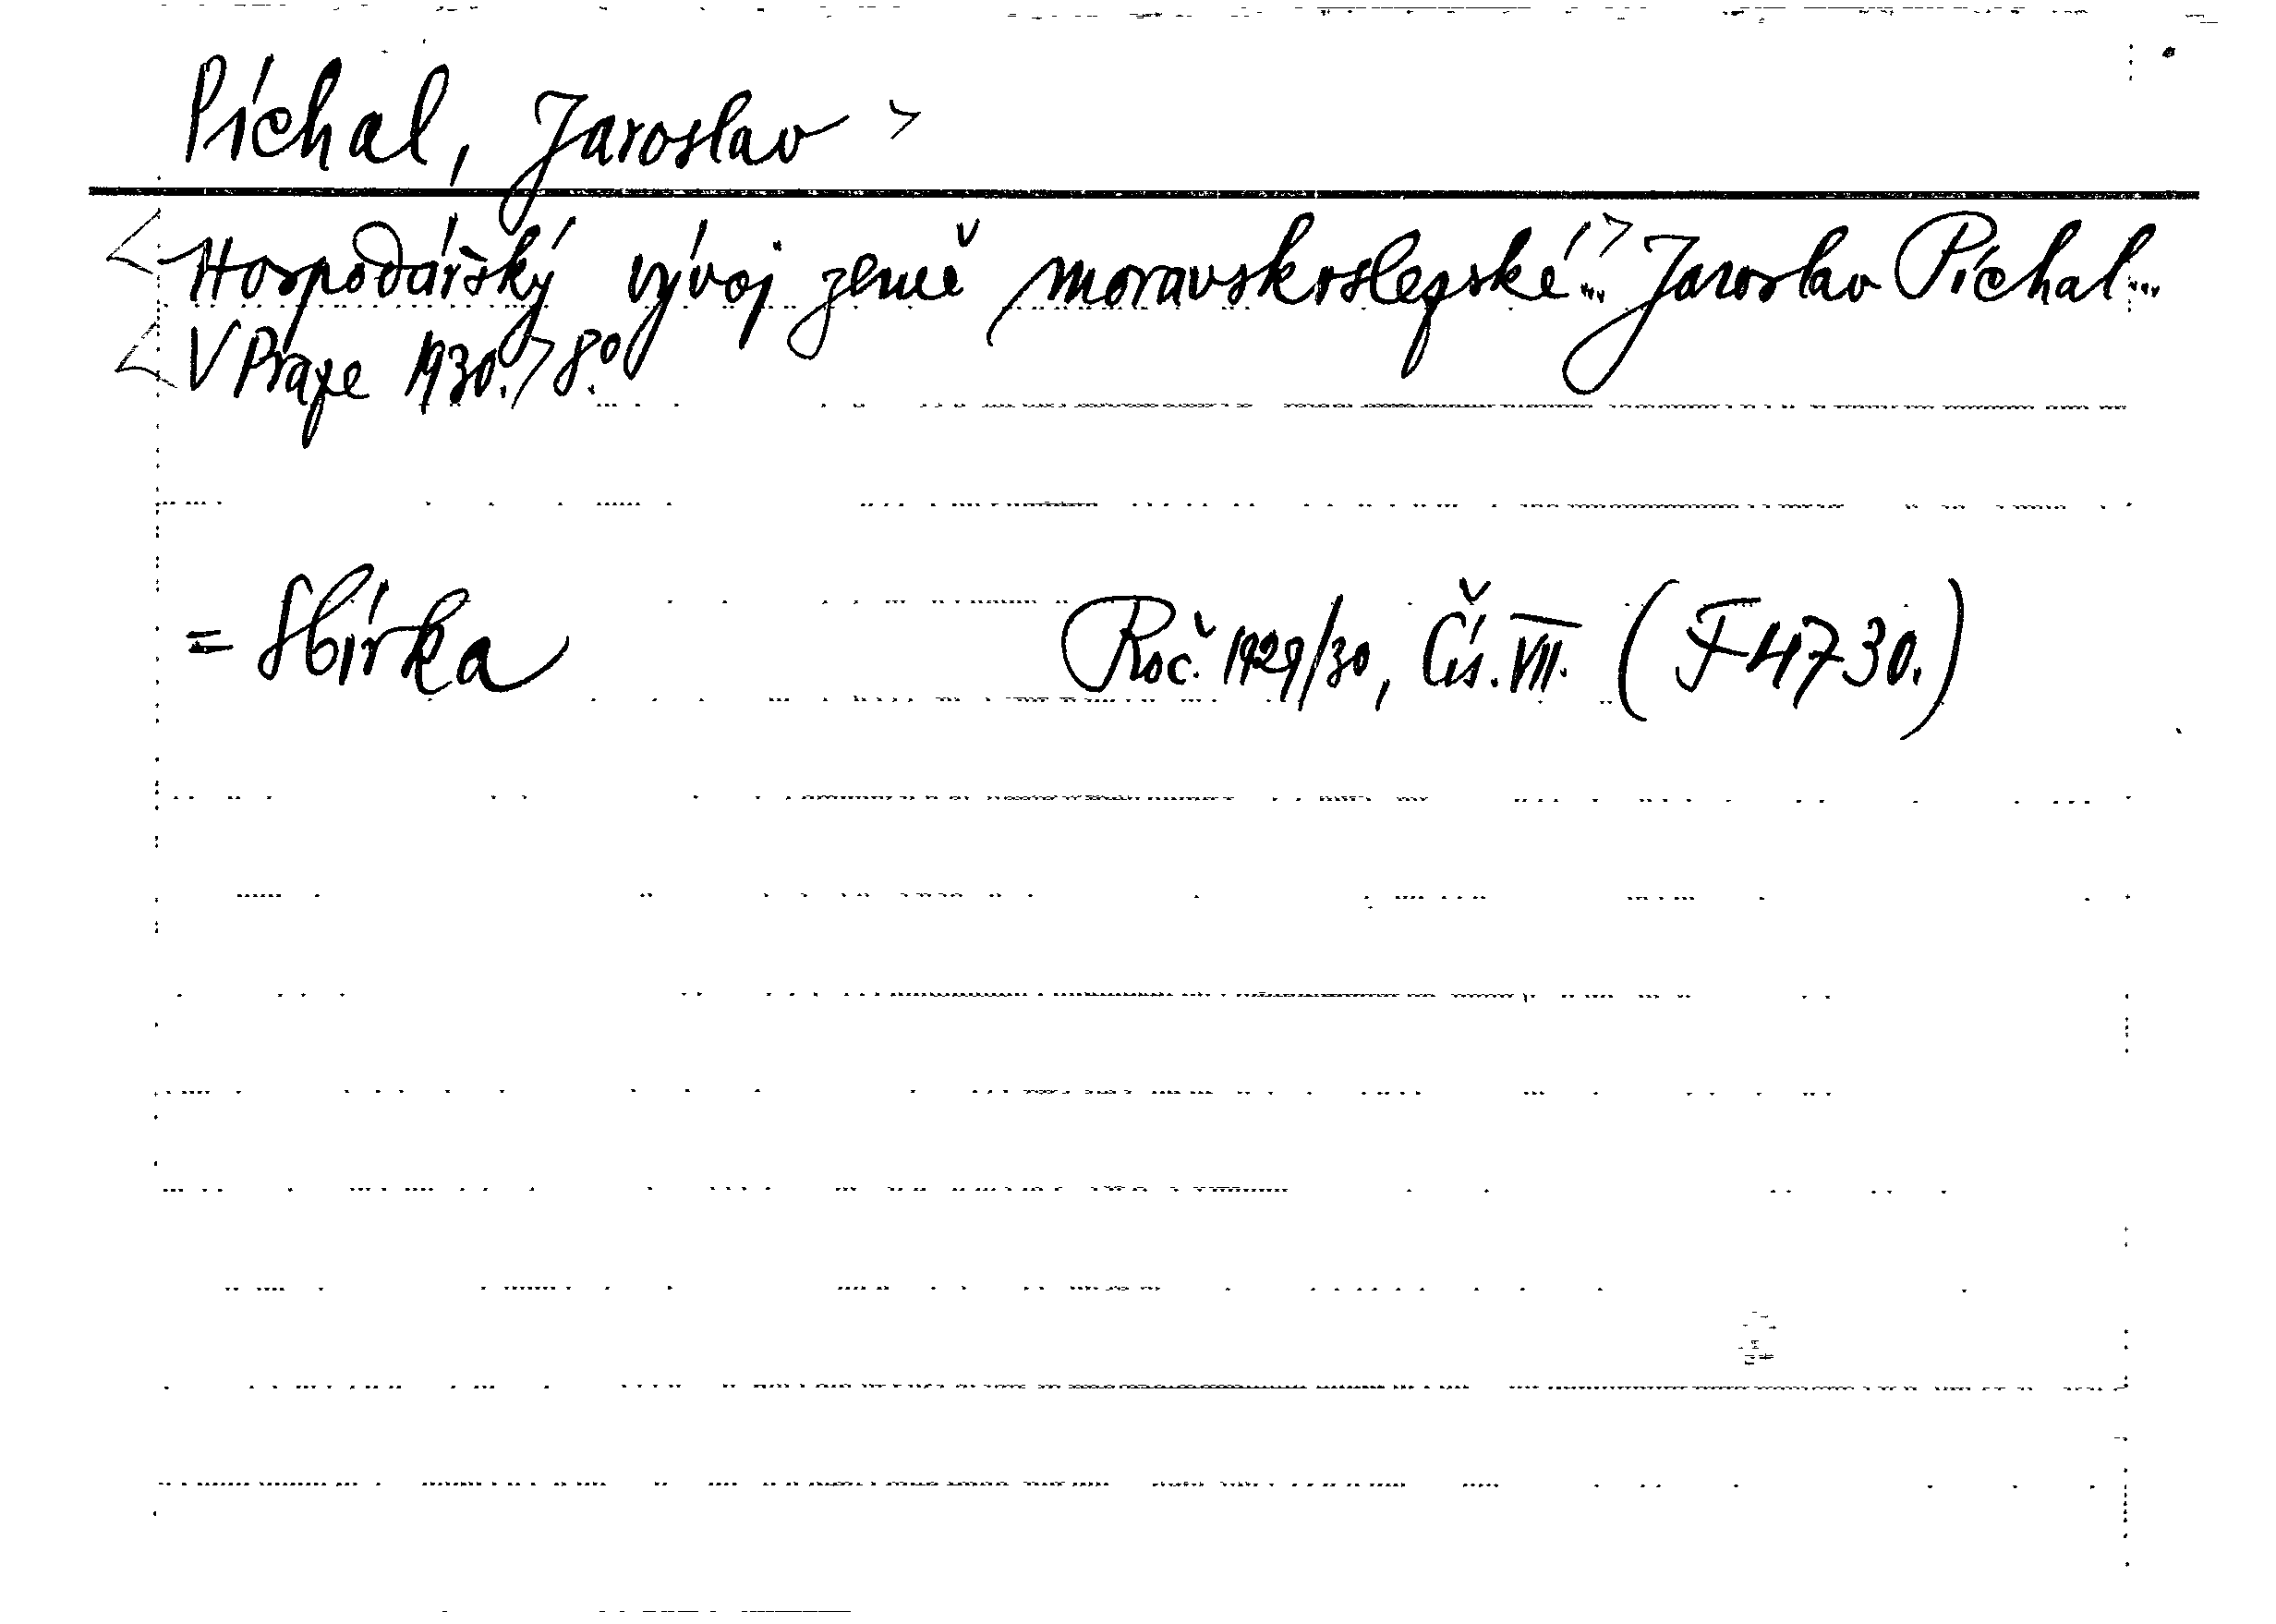 Píchal, Jaroslav >
< Hospodářský vývoj země moravskoslezské ... > Jaroslav Píchal ...
< V Praze 1930. > 8°.
= Sbírka Roč. 1929/30, Čís. VII. (F 4730.)